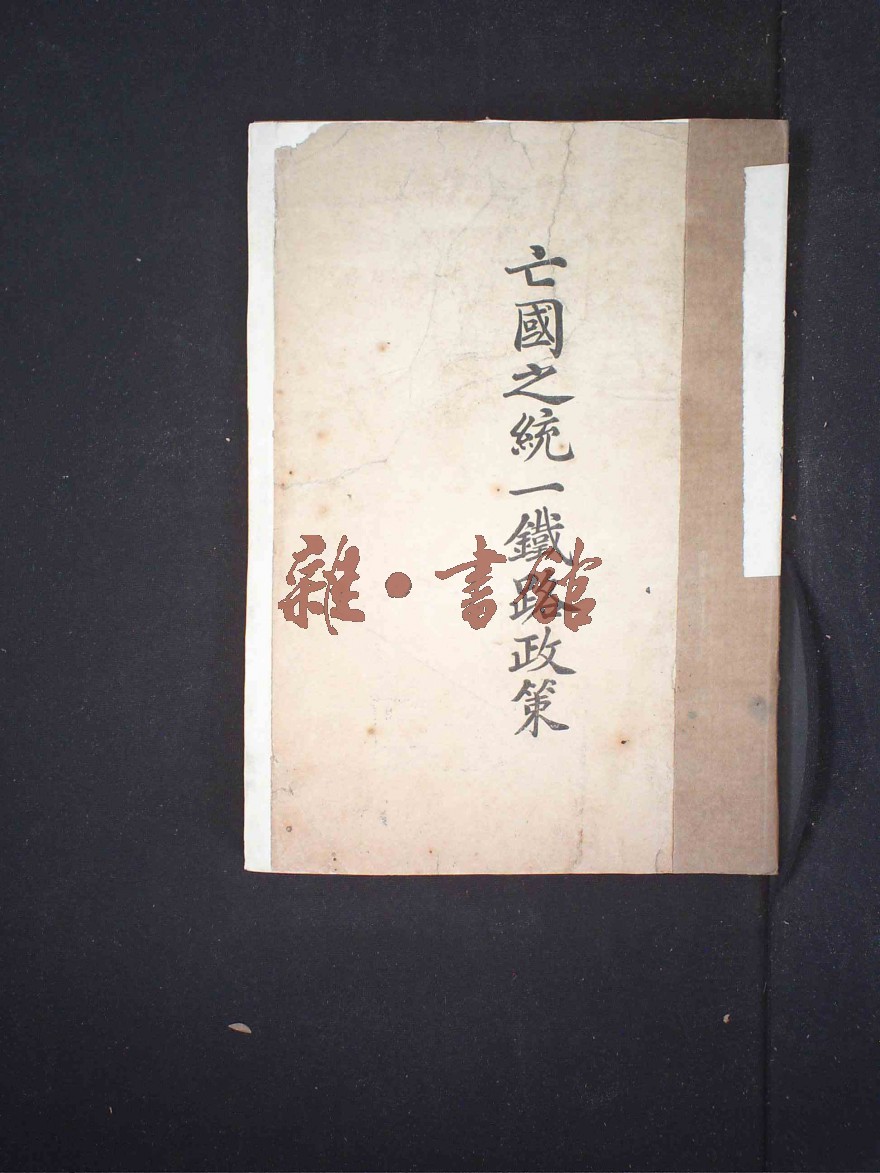 亡國之統一鐵路政策
雜·書館